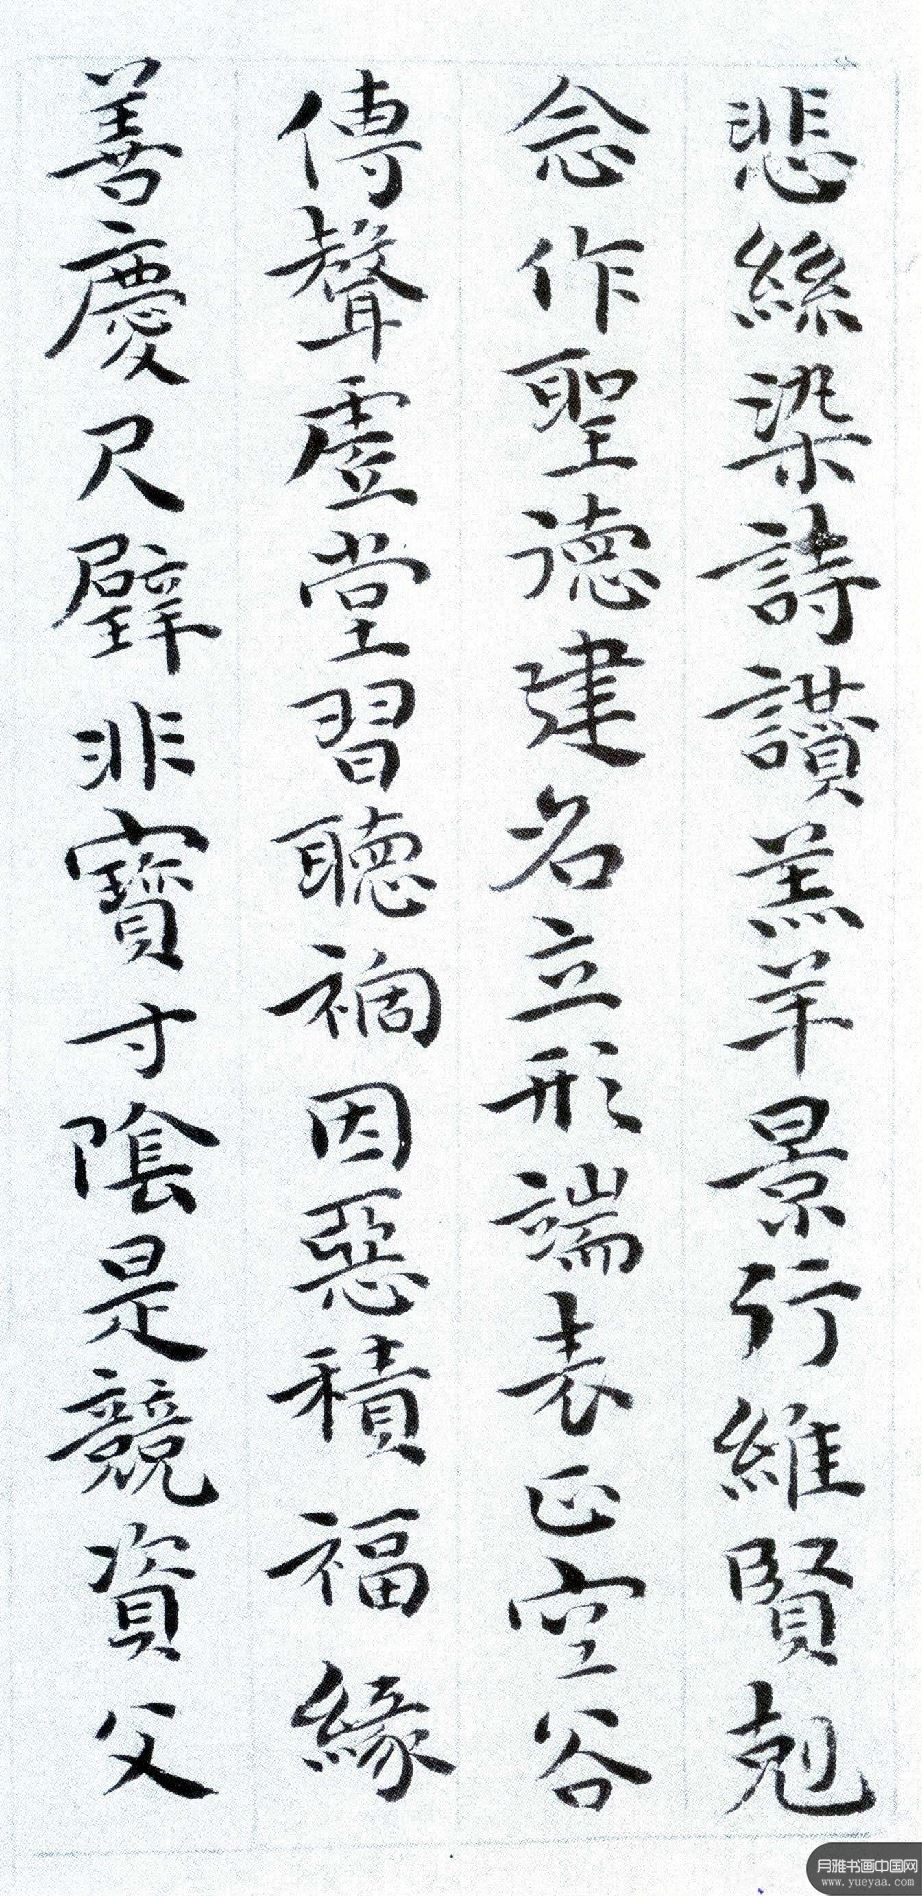 悲絲染詩讃羔羊景行維賢剋
念作聖德建名立形端表正空谷
傳聲虛堂習聽禍因惡積福緣
善慶尺璧非寶寸陰是競資父
月雅书画中国网
www.yueyaa.com